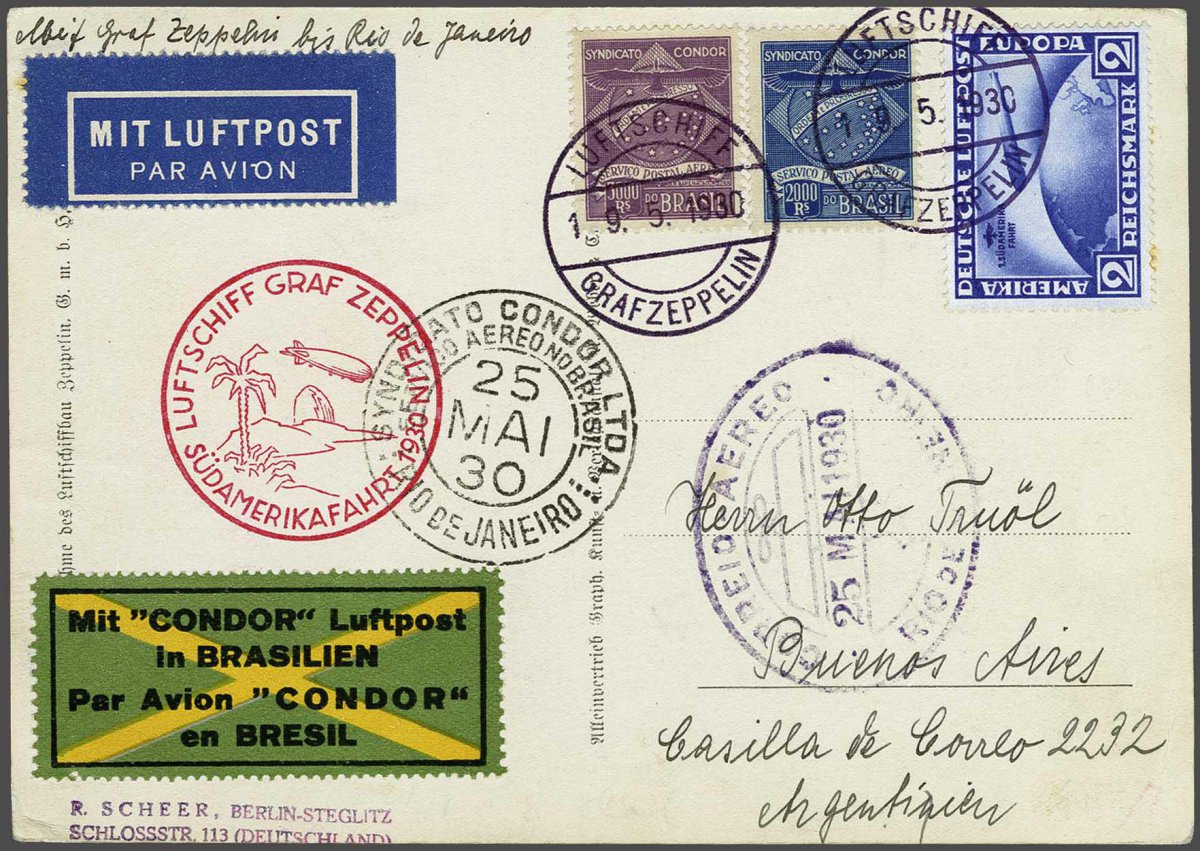 Mit Graf Zeppelin bis Rio de Janeiro
MIT LUFTPOST
PAR AVION
SYNDICATO CONDOR
ORDEM E PROGRESSO
SERVICO POSTAL AEREO
5000 Rs DO BRASIL
SYNDICATO CONDOR
ORDEM E PROGRESSO
SERVICO POSTAL AEREO
2000 Rs DO BRASIL
EUROPA
2
DEUTSCHE LUFTPOST
REICHSMARK
1. SÜDAMERIKA FAHRT
AMERIKA
2
LUFTSCHIFF
19. 5. 1930
GRAFZEPPELIN
LUFTSCHIFF
19. 5. 1930
GRAFZEPPELIN
LUFTSCHIFF GRAF ZEPPELIN
SÜDAMERIKAFAHRT 1930
SYNDICATO CONDOR LTDA
AEREO NO BRASIL
25
MAI
30
RIO DE JANEIRO
CORREIO AEREO
25 MAI 1930
des Luftschiffbau Zeppelin, G. m. b. H.
Alleinvertrieb Graph. Kunst
Herrn Otto Truöl
Buenos Aires
Casilla de Correo 2232
Argentinien
Mit "CONDOR" Luftpost
in BRASILIEN
Par Avion "CONDOR"
en BRESIL
R. SCHEER, BERLIN-STEGLITZ
SCHLOSSSTR. 113 (DEUTSCHLAND)